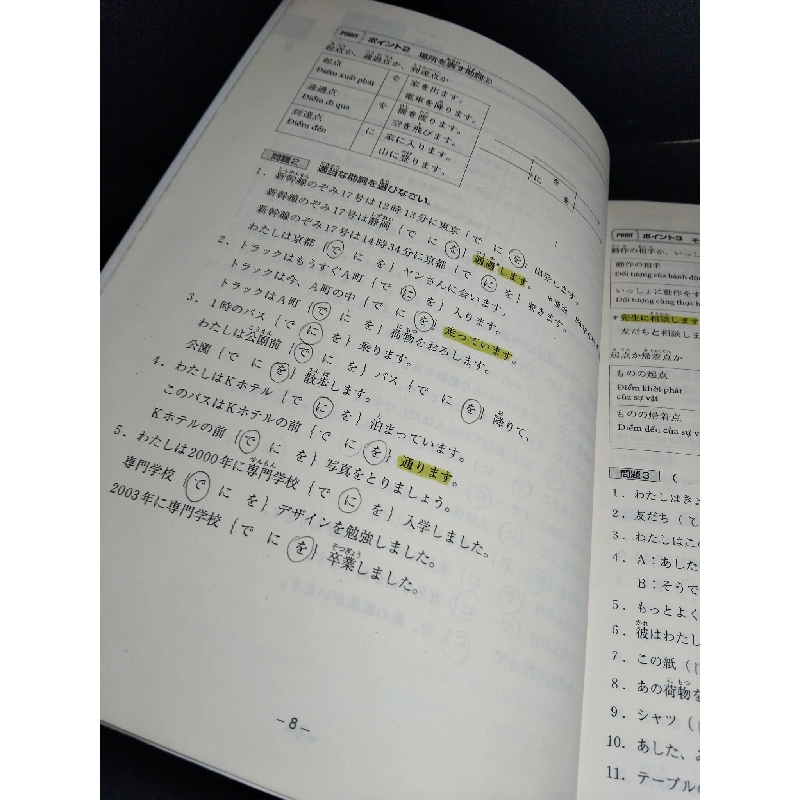 POINT ポイント2 場所を表す助詞②
起点か、通過点か、到達点か
起点
Điểm xuất phát
を
家を出ます。
電車を降ります。
通過点
Điểm đi qua
を
橋を渡ります。
空を飛びます。
到達点
Điểm đến
に
家に入ります。
山に登ります。
に を
を
問題2 適当な助詞を選びなさい。
1. 新幹線のぞみ17号は12時13分に東京 {で に を} 出発します。
新幹線のぞみ17号は静岡 {で に を} 通過します。
新幹線のぞみ17号は14時34分に京都 {で に を} 着きます。
わたしは京都 {で に を} ヤンさんに会います。
2. トラックはもうすぐA町 {で に を} 入ります。
トラックは今、A町の中 {で に を} 走っています。
トラックはA町 {で に を} 荷物をおろします。
3. 1時のバス {で に を} 乗ります。
わたしは公園前 {で に を} バス {で に を} 降りて、
公園 {で に を} 散歩します。
4. わたしはKホテル {で に を} 泊まっています。
このバスはKホテルの前 {で に を} 通ります。
Kホテルの前 {で に を} 写真をとりましょう。
5. わたしは2000年に専門学校 {で に を} 入学しました。
専門学校 {で に を} デザインを勉強しました。
2003年に専門学校 {で に を} 卒業しました。
－8－
POINT ポイント3 そ
動作の相手か、いっし
動作の相手
Đối tượng của hành độn
いっしょに動作をす
Đối tượng cùng thực h
*先生に相談します
友だちと相談しま
起点か帰着点か
ものの起点
Điểm khởi phát
của sự vật
ものの帰着点
Điểm đến của sự v
問題3 (
1. わたしはき
2. 友だち (て
3. わたしはこ
4. A：あした
B：そうで
5. もっとよく
6. 彼はわたし
7. この紙 (
8. あの荷物を
9. シャツ (
10. あした、
11. テーブルの